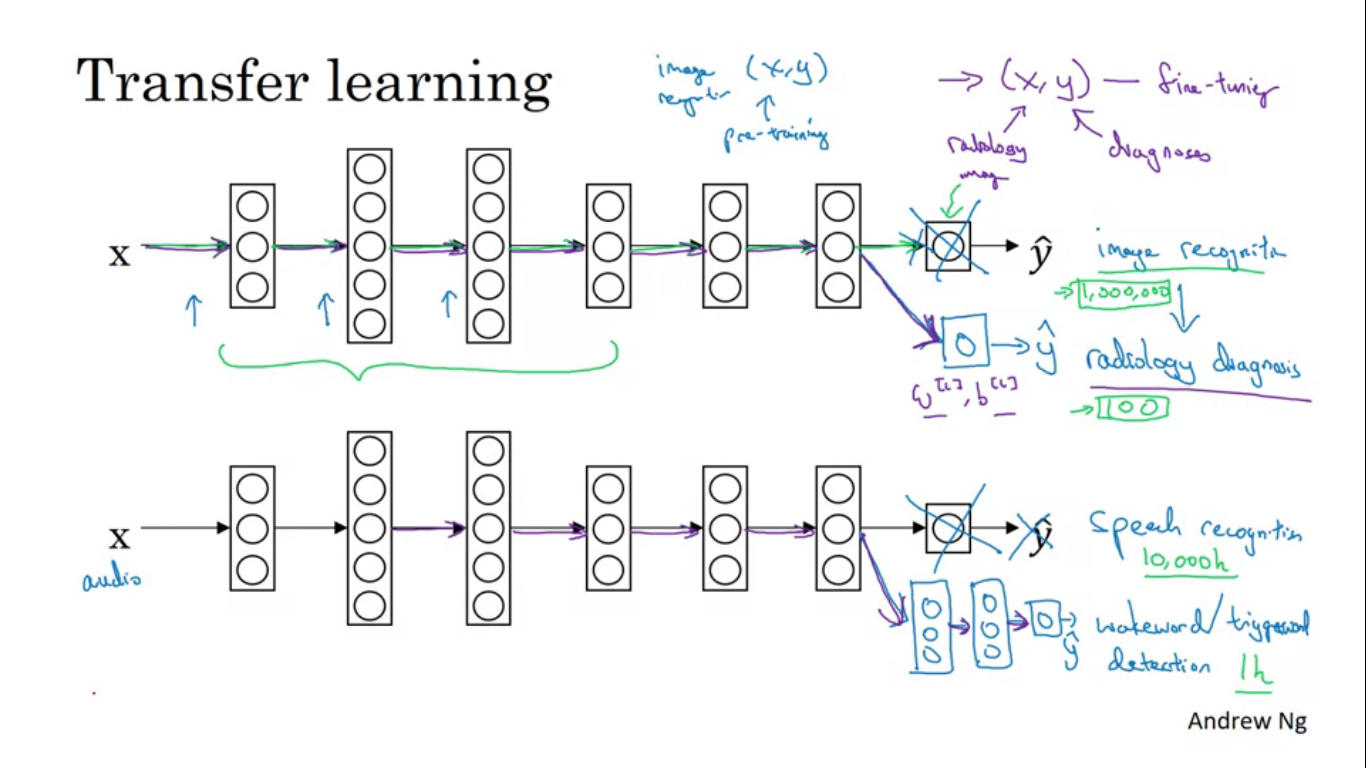 Transfer learning
image (x,y)
pre-training
→ (x,y) — fine-tuning
radiology
diagnoses
x
ŷ
image recognition
→ 1,000,000
ŷ
radiology diagnosis
w[L], b[L]
→ 100
x
audio
ŷ
speech recognition
10,000h
ŷ
wakeword/triggerword
detection 1h
Andrew Ng